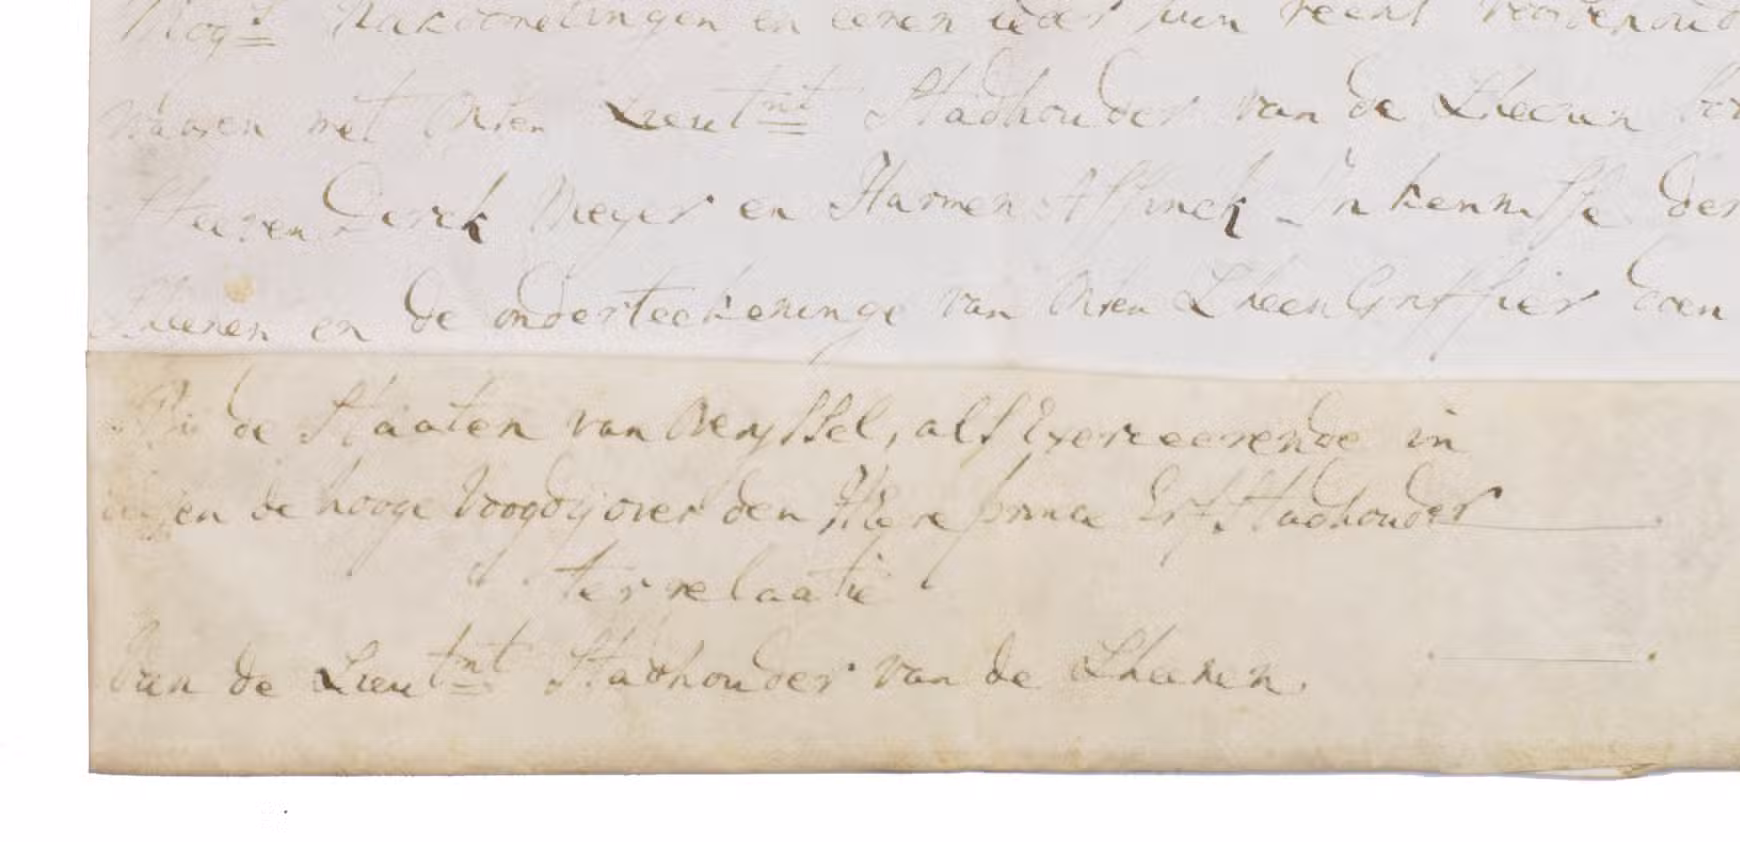 Mog:t Nakoomelingen en eenen ider sijn recht voorbehoud
waaren met Onsen Lieut:nt Stadhouder van de Lheenen
Heeren Derck Meyer en Harmen Assinck In kennisse der
Lheenen en de onderteekeninge van Onsen LheenGriffier doen
de Staaten van Overyssel, als Exerceerende in
en de hooge Voogdij over den Here prince Erfstadhouder
ter relaatie
Van de Lieut:nt Stadhouder van de Lheenen.